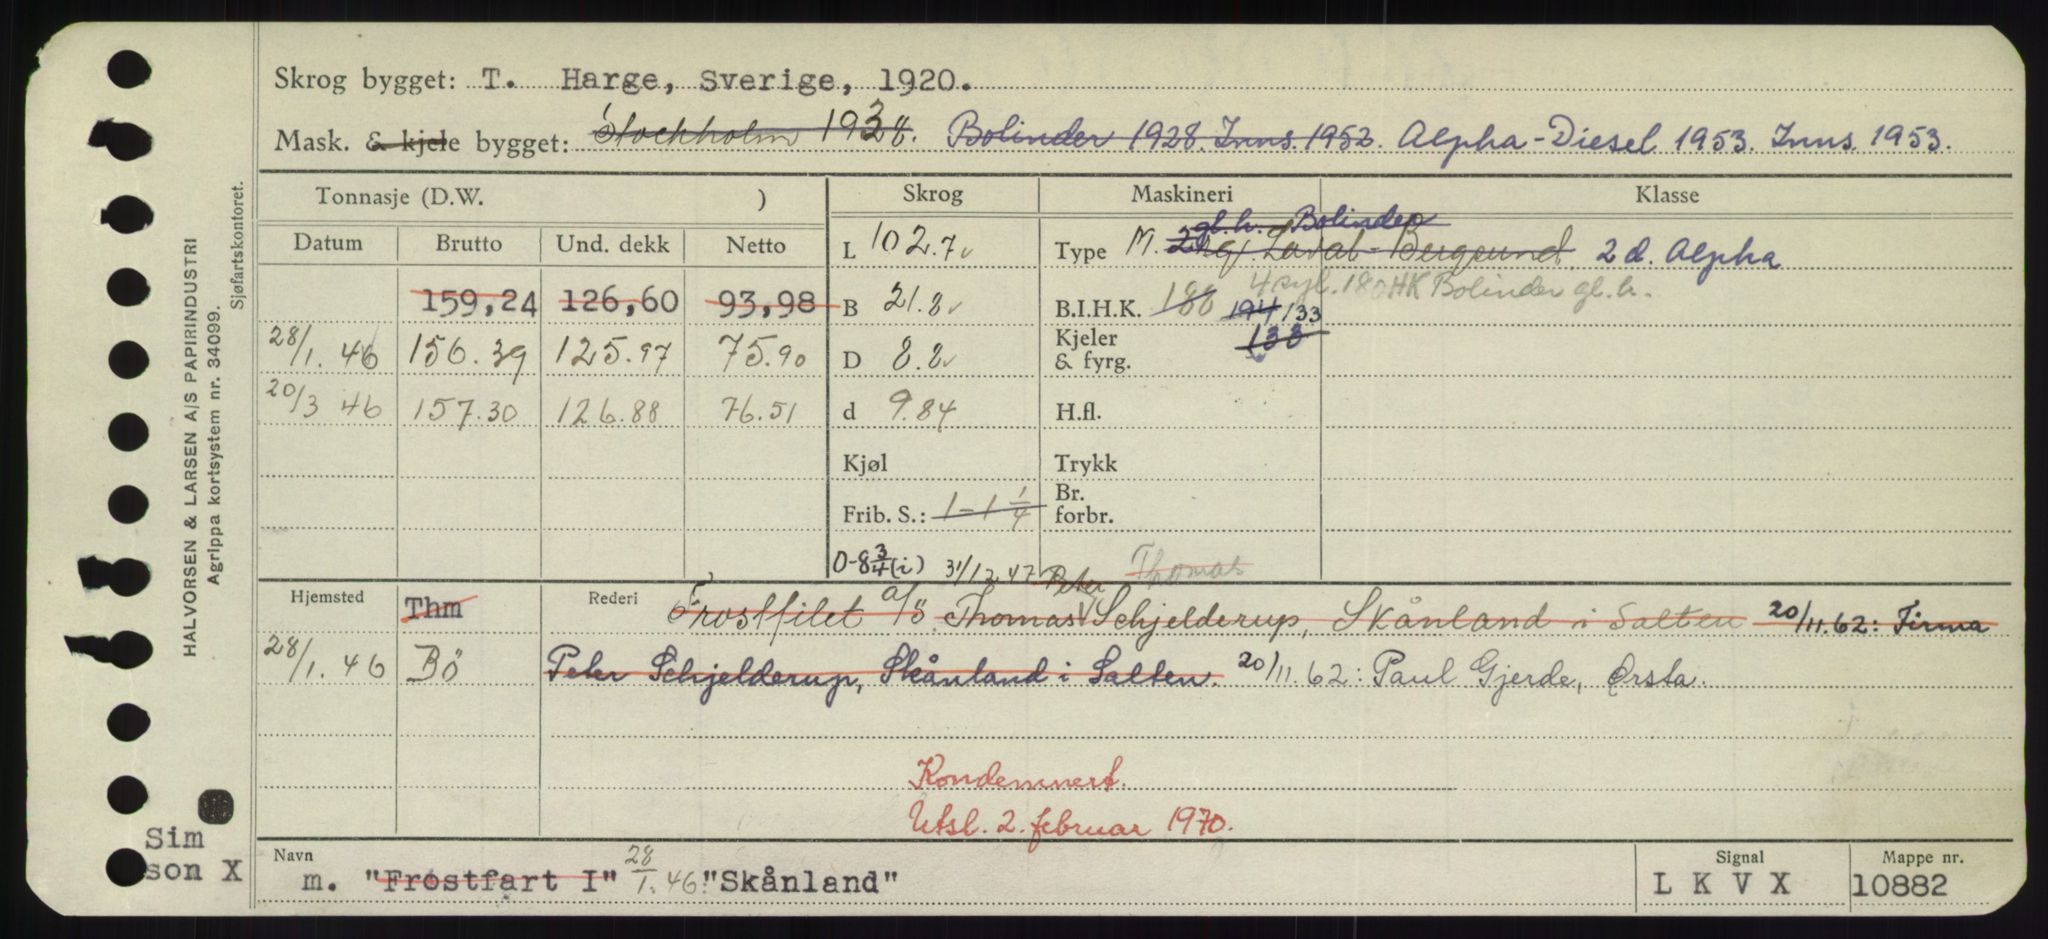 Skrog bygget: T. Harge, Sverige, 1920.
Mask. & kjele bygget: Stockholm 1938. Bolinder 1928. Inns. 1952. Alpha-Diesel 1953. Inns. 1953.
Tonnasje (D.W. ) Skrog Maskineri Klasse
Datum Brutto Und. dekk Netto
L 102.7
gl.h. Bolinder
Type M. Laval-Bergsund. 2 d. Alpha
4 syl. 180HK Bolinder gl.h.
159,24 126,60 93,98
B 21.8
B.I.H.K. 188 194/133
28/1. 46 156.39 125.97 75.90
D 8.8
Kjeler & fyrg. 138
20/3 46 157.30 126.88 76.51
d 9.84
H.fl.
Kjøl
Trykk
Frib. S.: 1-1 1/4
Br. forbr.
0-8 3/4 (i) 31/12.47 Peter Thomas
Hjemsted Thm Rederi Frostfilet a/s. Thomas Schjelderup, Skånland i Salten 20/11.62: Firma
28/1. 46 Bö Peter Schjelderup, Skånland i Salten. 20/11.62: Paul Gjerde, Ørsta.
Kondemnert.
Utsl. 2. februar 1970.
Navn m. "Frostfart I" 28/1.46: "Skånland"
Signal L K V X
Mappe nr. 10882
Sim
son X
HALVORSEN & LARSEN A/S PAPIRINDUSTRI
Agrippa kortsystem nr. 34099.
Sjøfartskontoret.